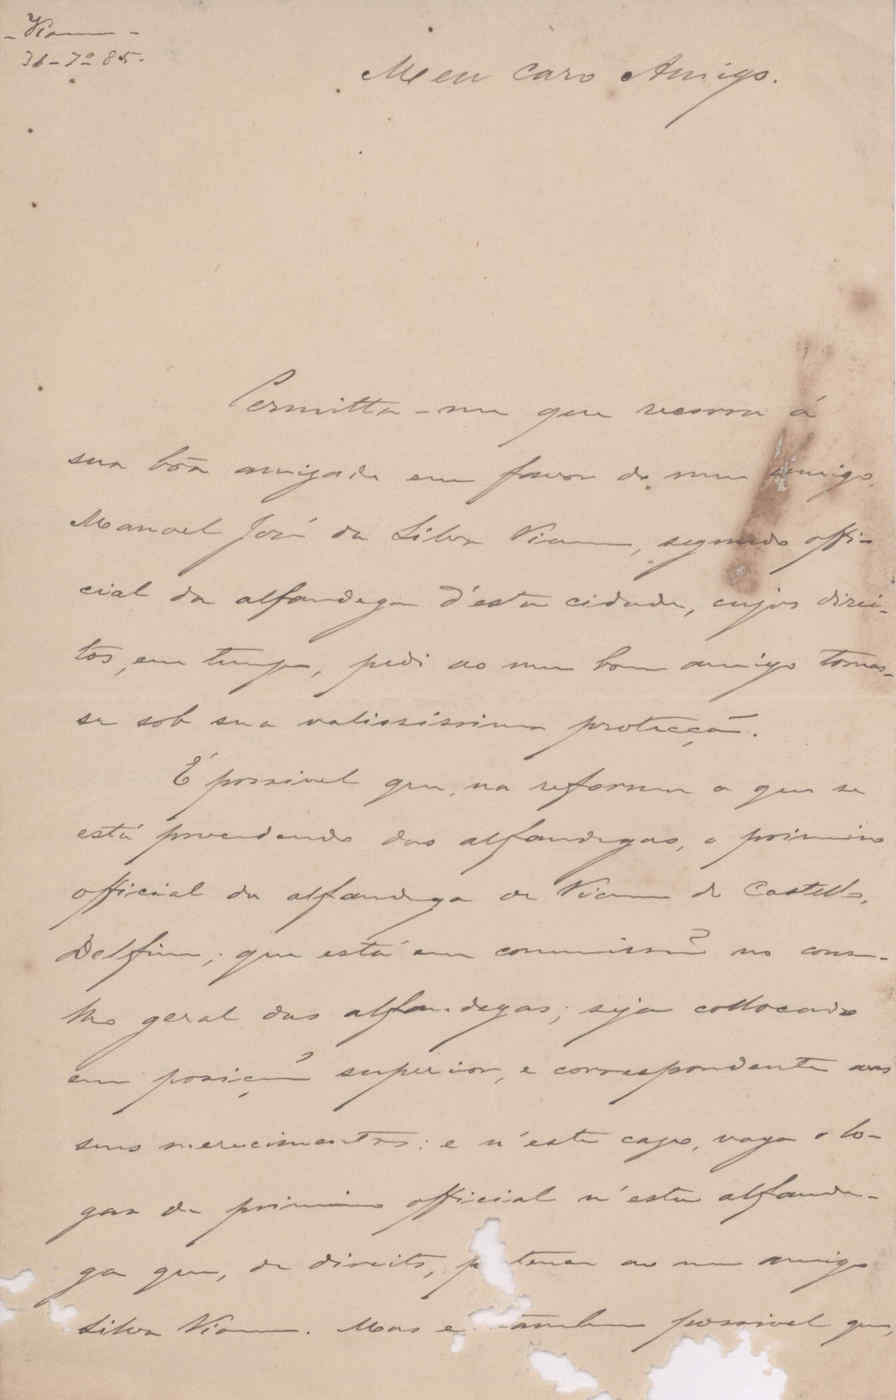 - Vianna -
31-7º 85.
Meu caro Amigo.
Permitta-me que recorra á
sua bôa amizade em favor do meu amigo,
Manoel José da Silva Vianna, segundo offi-
cial da alfandega d'esta cidade, cujos direi-
tos, em tempo, pedi ao meu bom amigo tomas-
se sob sua valiosissima protecçã.
É possivel que, na reforma a que se
está procedendo das alfandegas, o primeiro
official da alfandega de Vianna do Castello,
Delfim, que está em commissão no conse-
lho geral das alfandegas, seja collocado
em posição superior, e correspondente aos
seus merecimentos: e n'este caso, vaga o lo-
gar de primeiro official n'esta alfande-
ga que, de direito, pertence ao meu amigo
Silva Vianna. Mas é tambem possivel que,